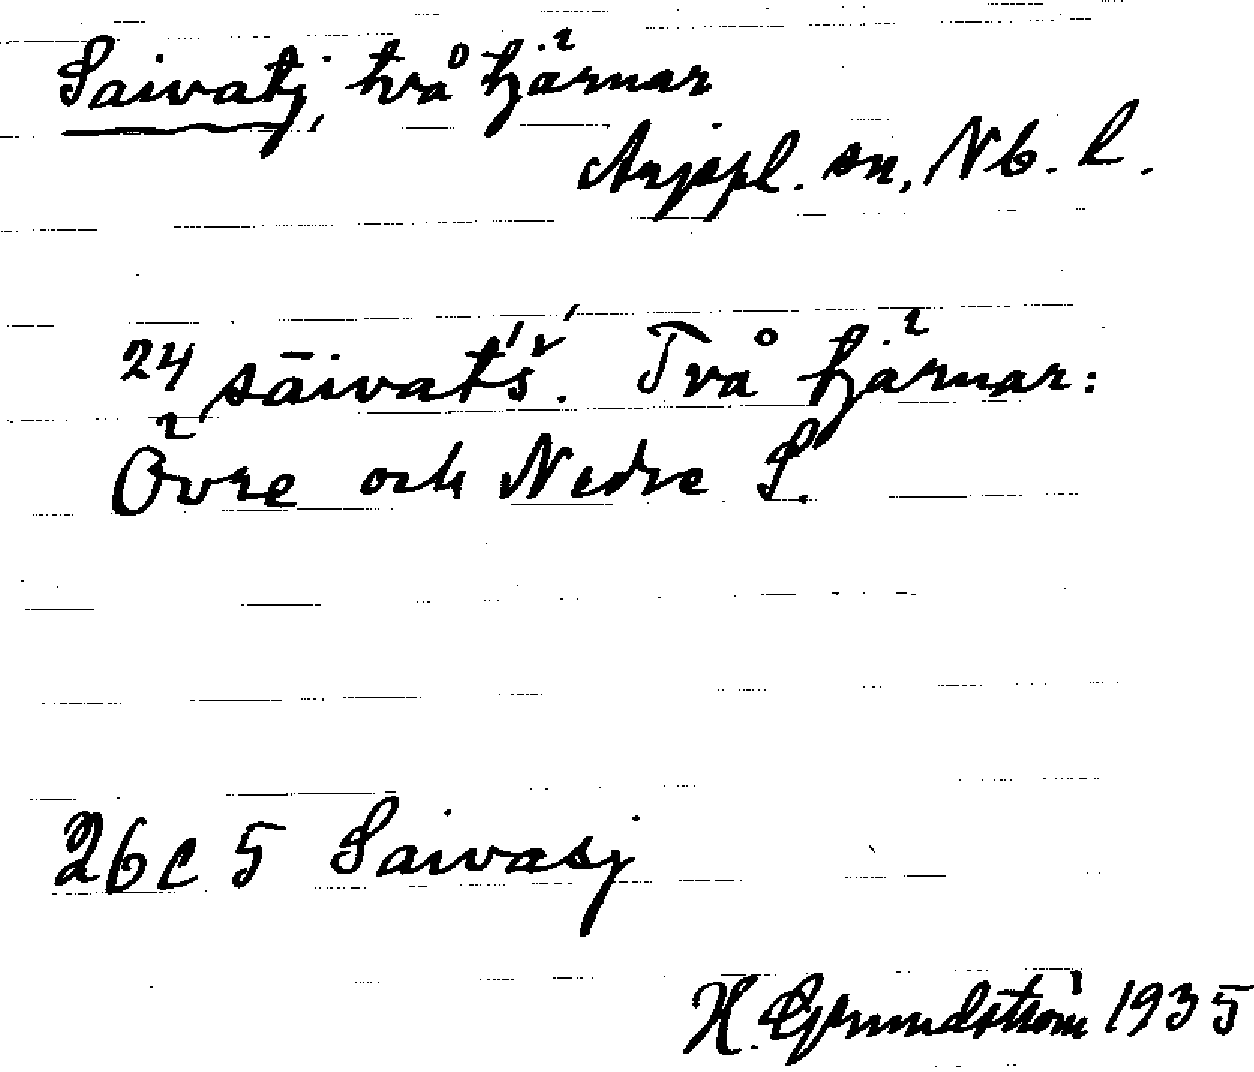 Saivatj, två tjärnar
Arjepl. sn, Nb. l.
24 sāivat́š́. Två tjärnar:
Övre och Nedre S.
26 C 5 Saivasj
H. Grundström 1935